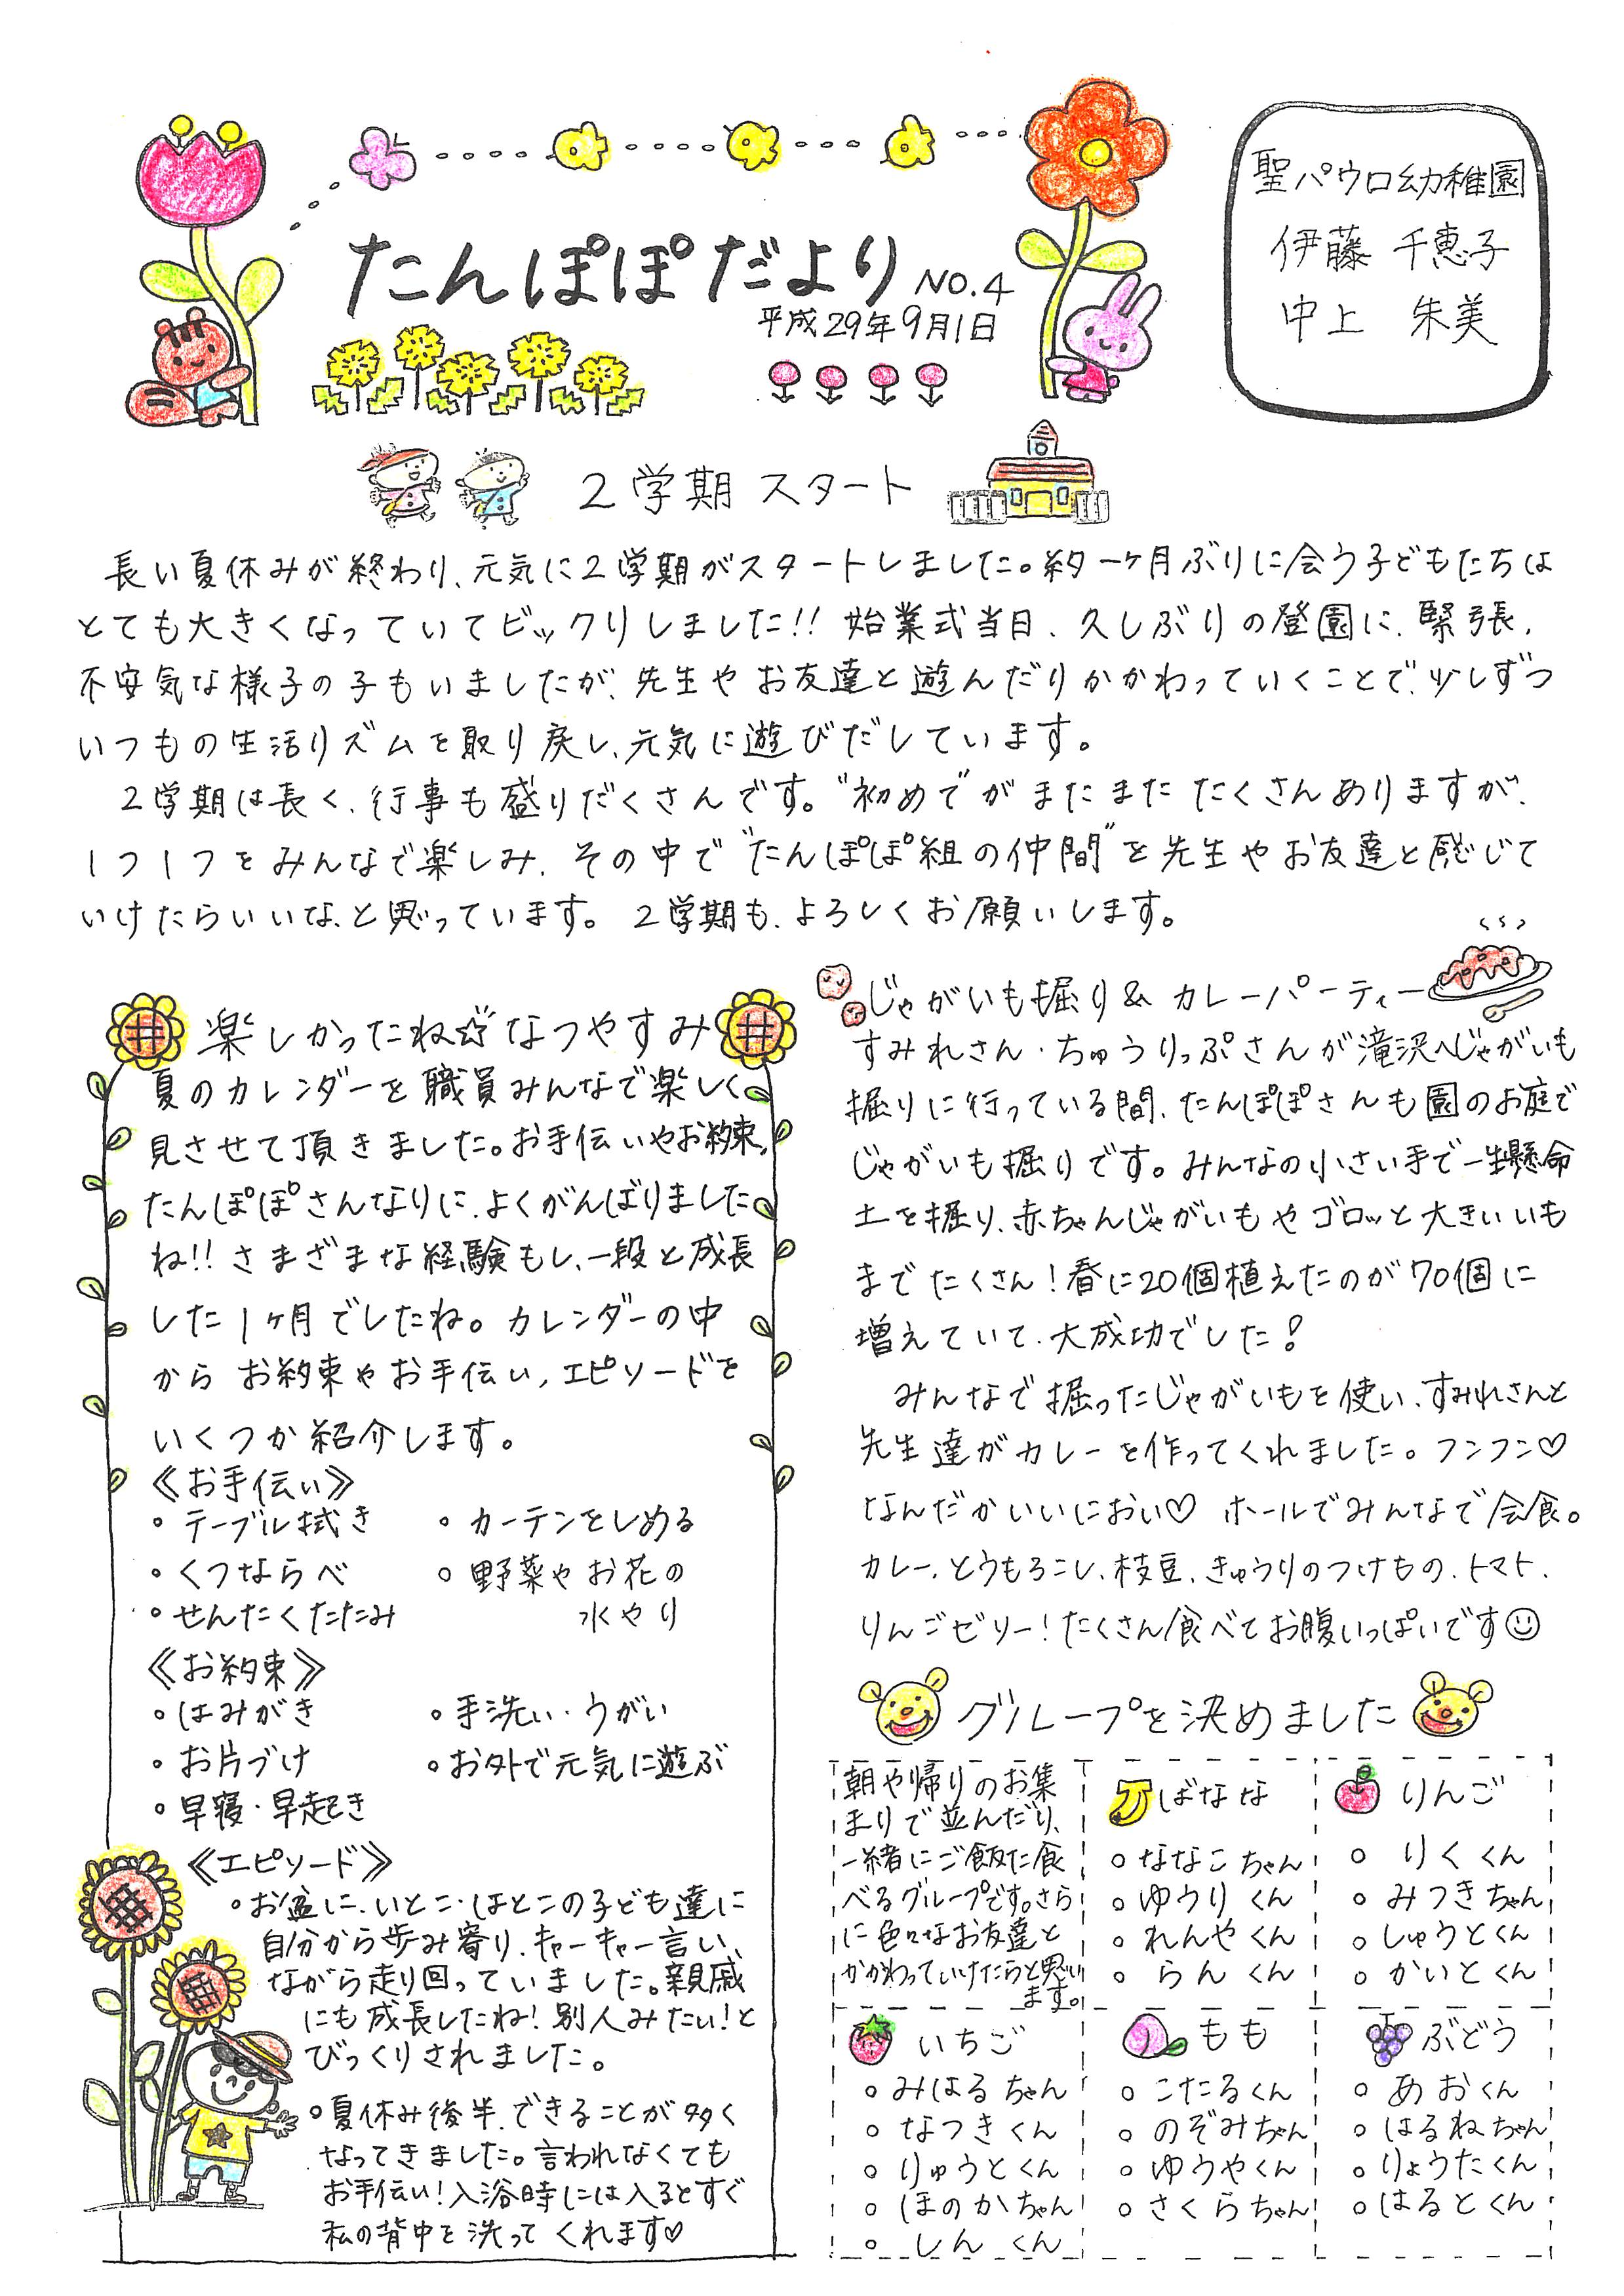 聖パウロ幼稚園
伊藤 千恵子
中上 朱美
たんぽぽだより NO.4
平成29年9月1日
2学期 スタート
長い夏休みが終わり、元気に2学期がスタートしました。約一ヶ月ぶりに会う子どもたちは
とても大きくなっていてビックリしました!! 始業式当日、久しぶりの登園に、緊張、
不安気な様子の子もいましたが、先生やお友達と遊んだりかかわっていくことで、少しずつ
いつもの生活リズムを取り戻し、元気に遊びだしています。
2学期は長く、行事も盛りだくさんです。"初めて"がまだまだたくさんありますが、
1つ1つをみんなで楽しみ、その中で"たんぽぽ組の仲間"を先生やお友達と感じて
いけたらいいな、と思っています。2学期も、よろしくお願いします。
楽しかったね☆なつやすみ
夏のカレンダーを職員みんなで楽しく
見させて頂きました。お手伝いやお約束、
たんぽぽさんなりに、よくがんばりました
ね!! さまざまな経験もし、一段と成長
した1ヶ月でしたね。カレンダーの中
から お約束やお手伝い、エピソードを
いくつか紹介します。
《お手伝い》
・テーブル拭き ・カーテンをしめる
・くつならべ ・野菜やお花の
・せんたくたたみ 水やり
《お約束》
・はみがき ・手洗い・うがい
・お片づけ ・お外で元気に遊ぶ
・早寝・早起き
《エピソード》
・お盆に、いとこ・はとこの子ども達に
自分から歩み寄り、キャーキャー言い
ながら走り回っていました。親戚
にも成長したね!別人みたい!と
びっくりされました。
・夏休み後半、できることが多く
なってきました。言われなくても
お手伝い!入浴時には入るとすぐ
私の背中を洗ってくれます♡
じゃがいも掘り& カレーパーティー
すみれさん・ちゅうりっぷさんが滝沢へじゃがいも
掘りに行っている間、たんぽぽさんも園のお庭で
じゃがいも掘りです。みんなの小さい手で一生懸命
土を掘り、赤ちゃんじゃがいもやゴロッと大きいいも
までたくさん!春に20個植えたのが70個に
増えていて、大成功でした!
みんなで掘ったじゃがいもを使い、すみれさんと
先生達がカレーを作ってくれました。フンフン♡
なんだかいいにおい♡ ホールでみんなで会食。
カレー、とうもろこし、枝豆、きゅうりのつけもの、トマト、
りんごゼリー!たくさん食べてお腹いっぱいです☺
グループを決めました
朝や帰りのお集
まりで並んだり、
一緒にご飯を食
べるグループです。さら
に色々なお友達と
かかわっていけたらと思い
ます。
ばなな
・ななこちゃん
・ゆうりくん
・れんやくん
・らんくん
りんご
・りくくん
・みつきちゃん
・しゅうとくん
・かいとくん
いちご
・みはるちゃん
・なつきくん
・りゅうとくん
・ほのかちゃん
・しんくん
もも
・こたるくん
・のぞみちゃん
・ゆうやくん
・さくらちゃん
ぶどう
・あおくん
・はるねちゃん
・りょうたくん
・はるとくん